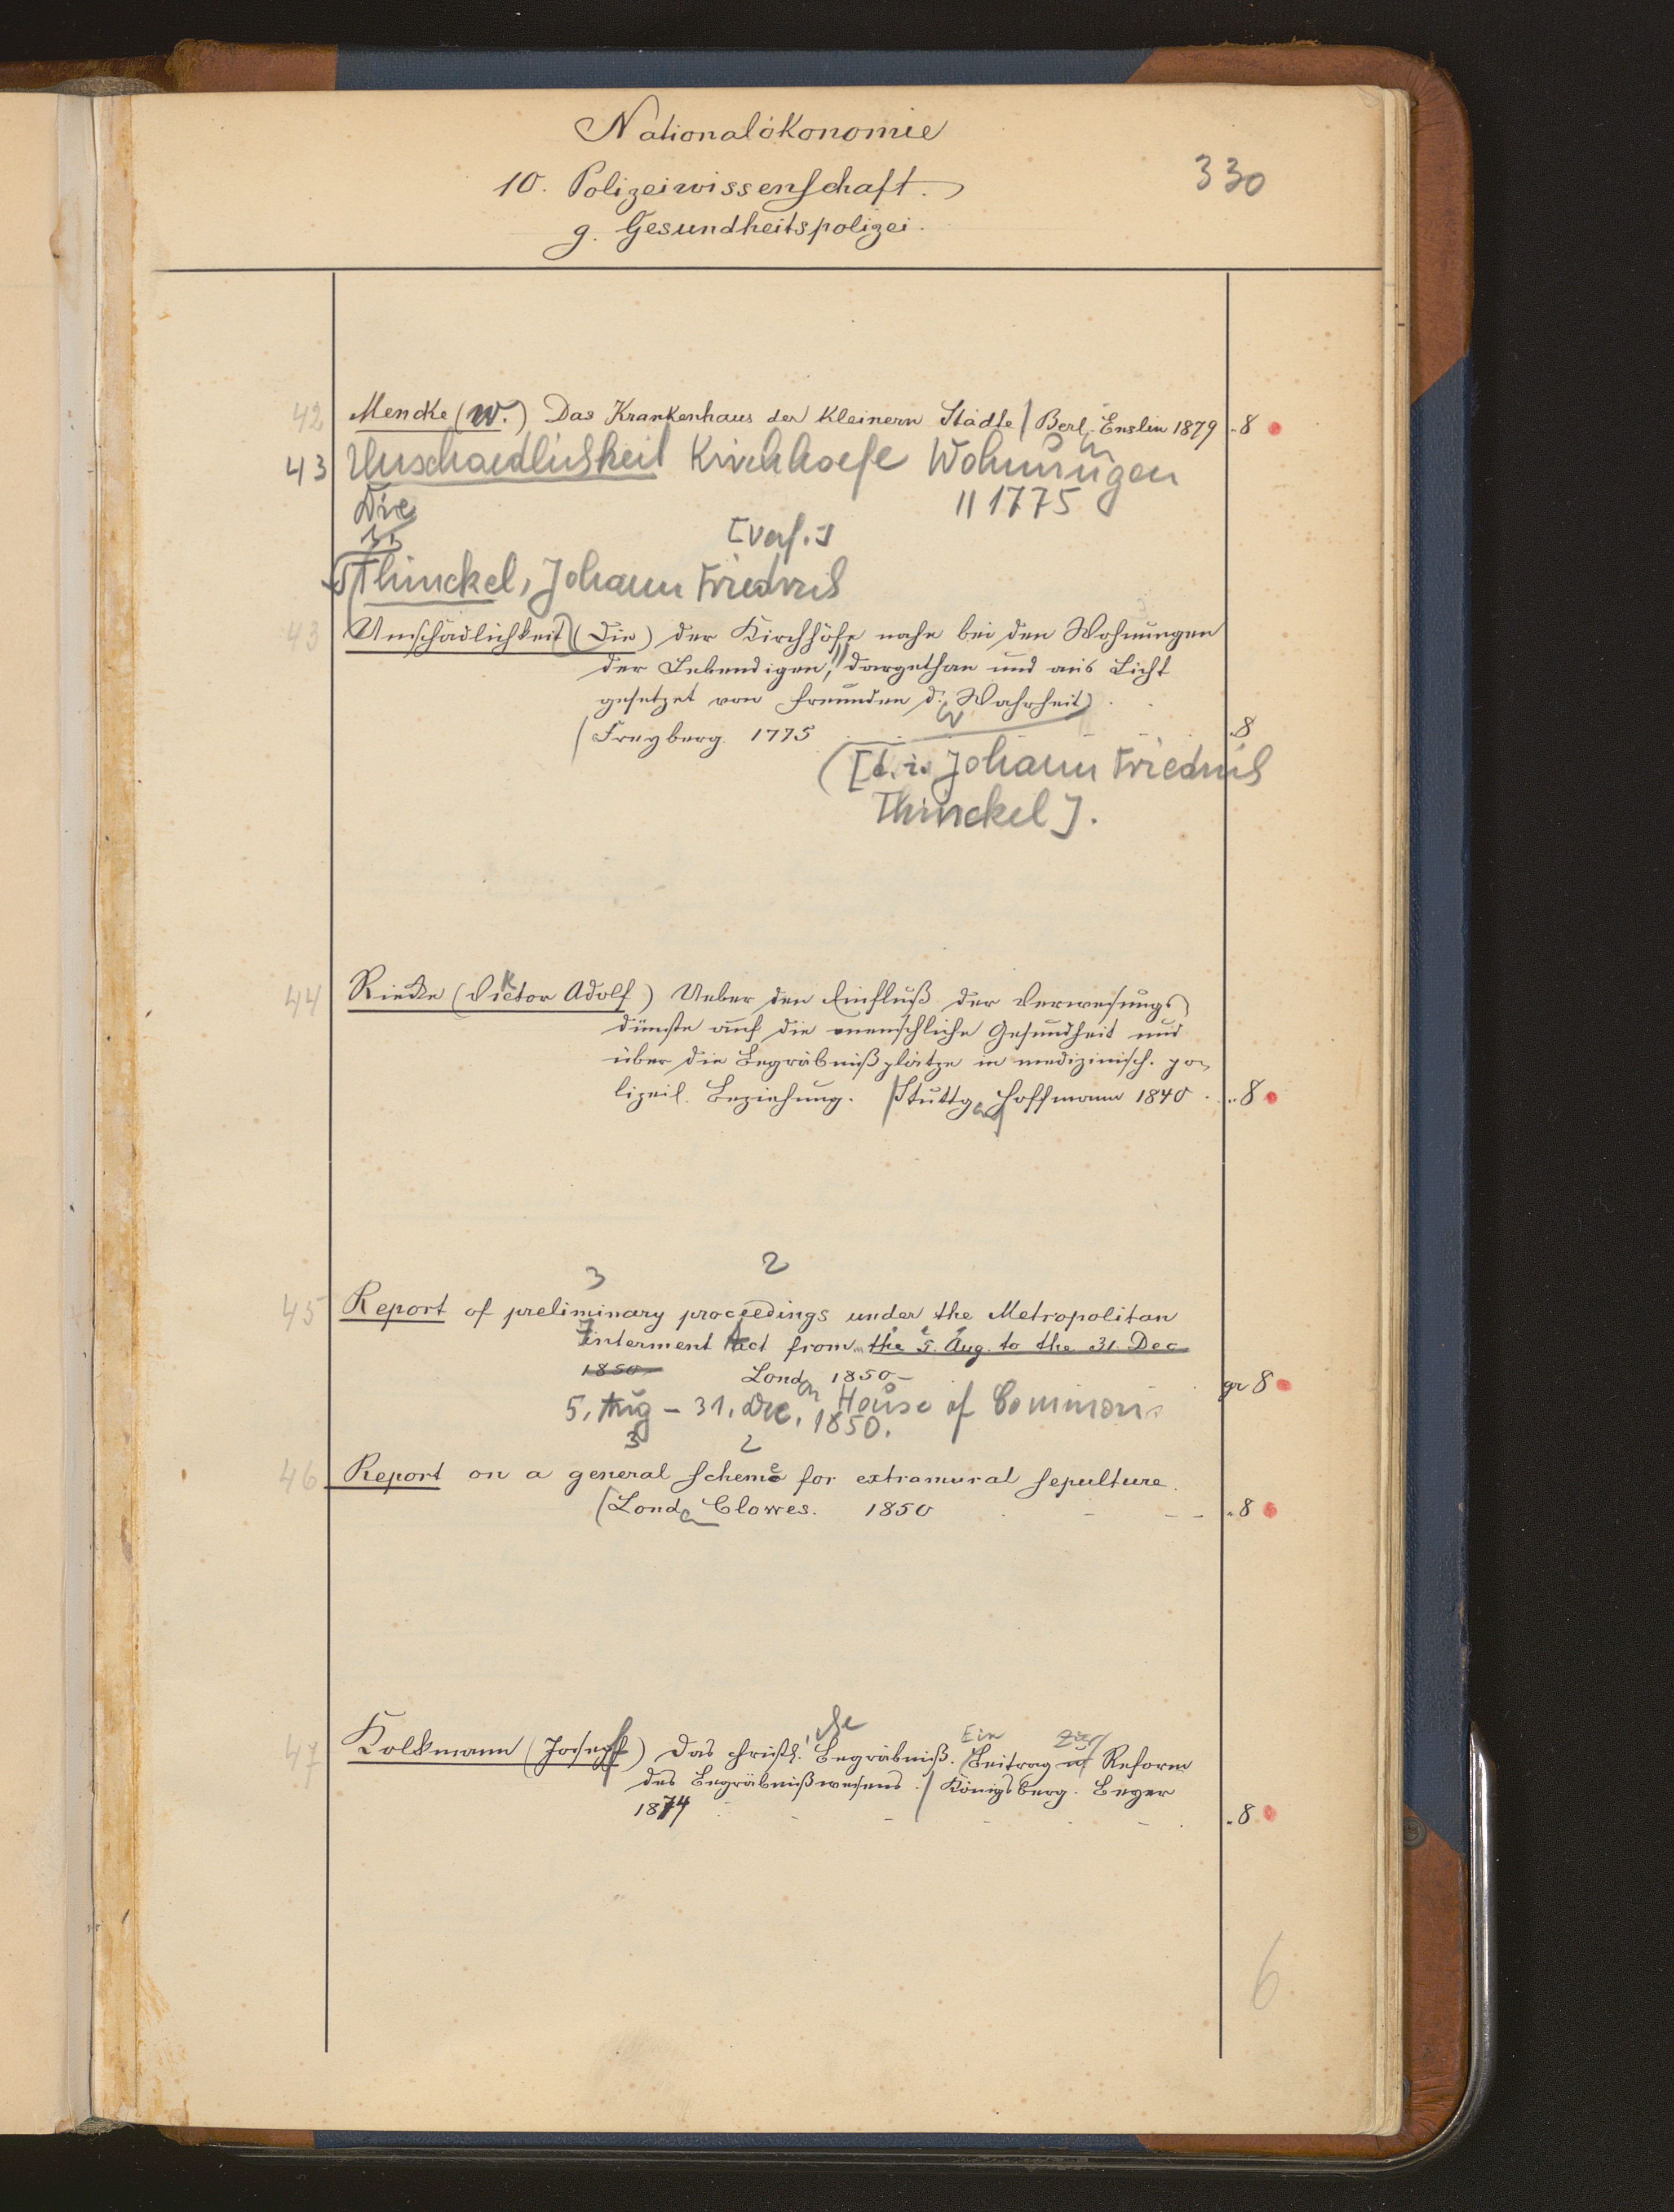 Nationalökonomie
330
10. Polizeiwissenschaft.
g. Gesundheitspolizei.
42 Mencke (W.) Das Krankenhaus der kleinern Städte / Berl. Enslin 1879 8
43 Unschaedlichkeit Kirchhoefe Wohnungen
Die || 1775
[Verf.:]
Thinckel, Johann Friedrich
43 Unschädlichkeit (Die) der Kirchhöfe nahe bei den Wohnungen
der Lebendigen, dargethan und ans Licht
gesetzet von Freunden d. Wahrheit.
Freyberg. 1775 8
[d. i. Johann Friedrich
Thinckel].
44 Riecke (Victor Adolf) Ueber den Einfluß der Verwesungs
dünste auf die menschliche Gesundheit und
über die Begräbnißplätze in medizinisch. po-
lizeil. Beziehung. / Stuttg. Hoffmann 1840. 8
3 2
45 Report of preliminary proceedings under the Metropolitan
Interment Act from the 5. Aug. to the 31. Dec
1850 Lond 1850 gr 8
5. Aug – 31. Dec. 1850. House of Commons
3 2
46 Report on a general scheme for extramural sepulture.
Lond Clowes. 1850 8
che Ein zur
47 Kolkmann (Joseph) Das christl. Begräbniß. Beitrag z. Reform
des Begräbnißwesens. / Königsberg. Beyer
1874 8
6